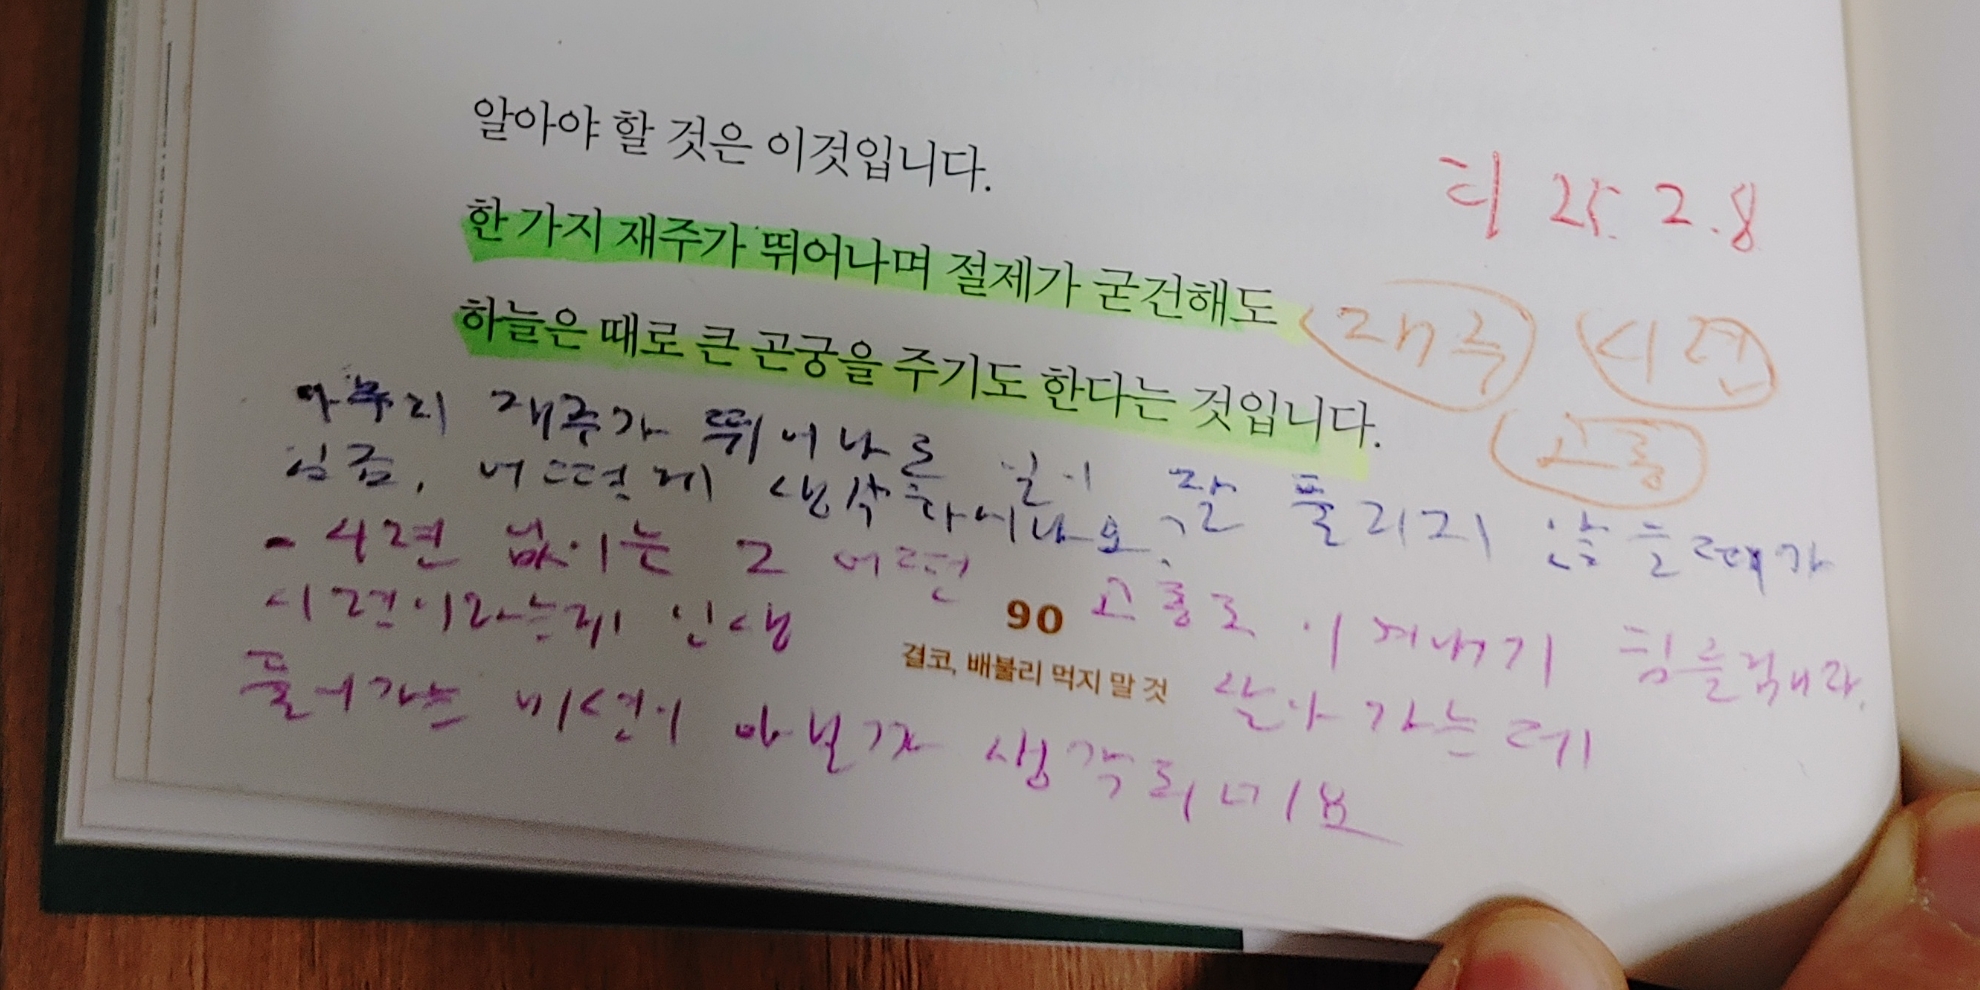 알아야 할 것은 이것입니다.
티 25. 2.8
한 가지 재주가 뛰어나며 절제가 굳건해도
재주 시련
하늘은 때로 큰 곤궁을 주기도 한다는 것입니다.
고통
아무리 재주가 뛰어나도 일이 잘 풀리지 않을때가
있죠. 어떻게 생각하시나요?
- 시련 없이는 그 어떤 고통도 이겨내기 힘들거예라.
시련이라는게 인생 살아가는데
풀어가는 비선이 아닐까 생각되네요
90
결코, 배불리 먹지 말 것